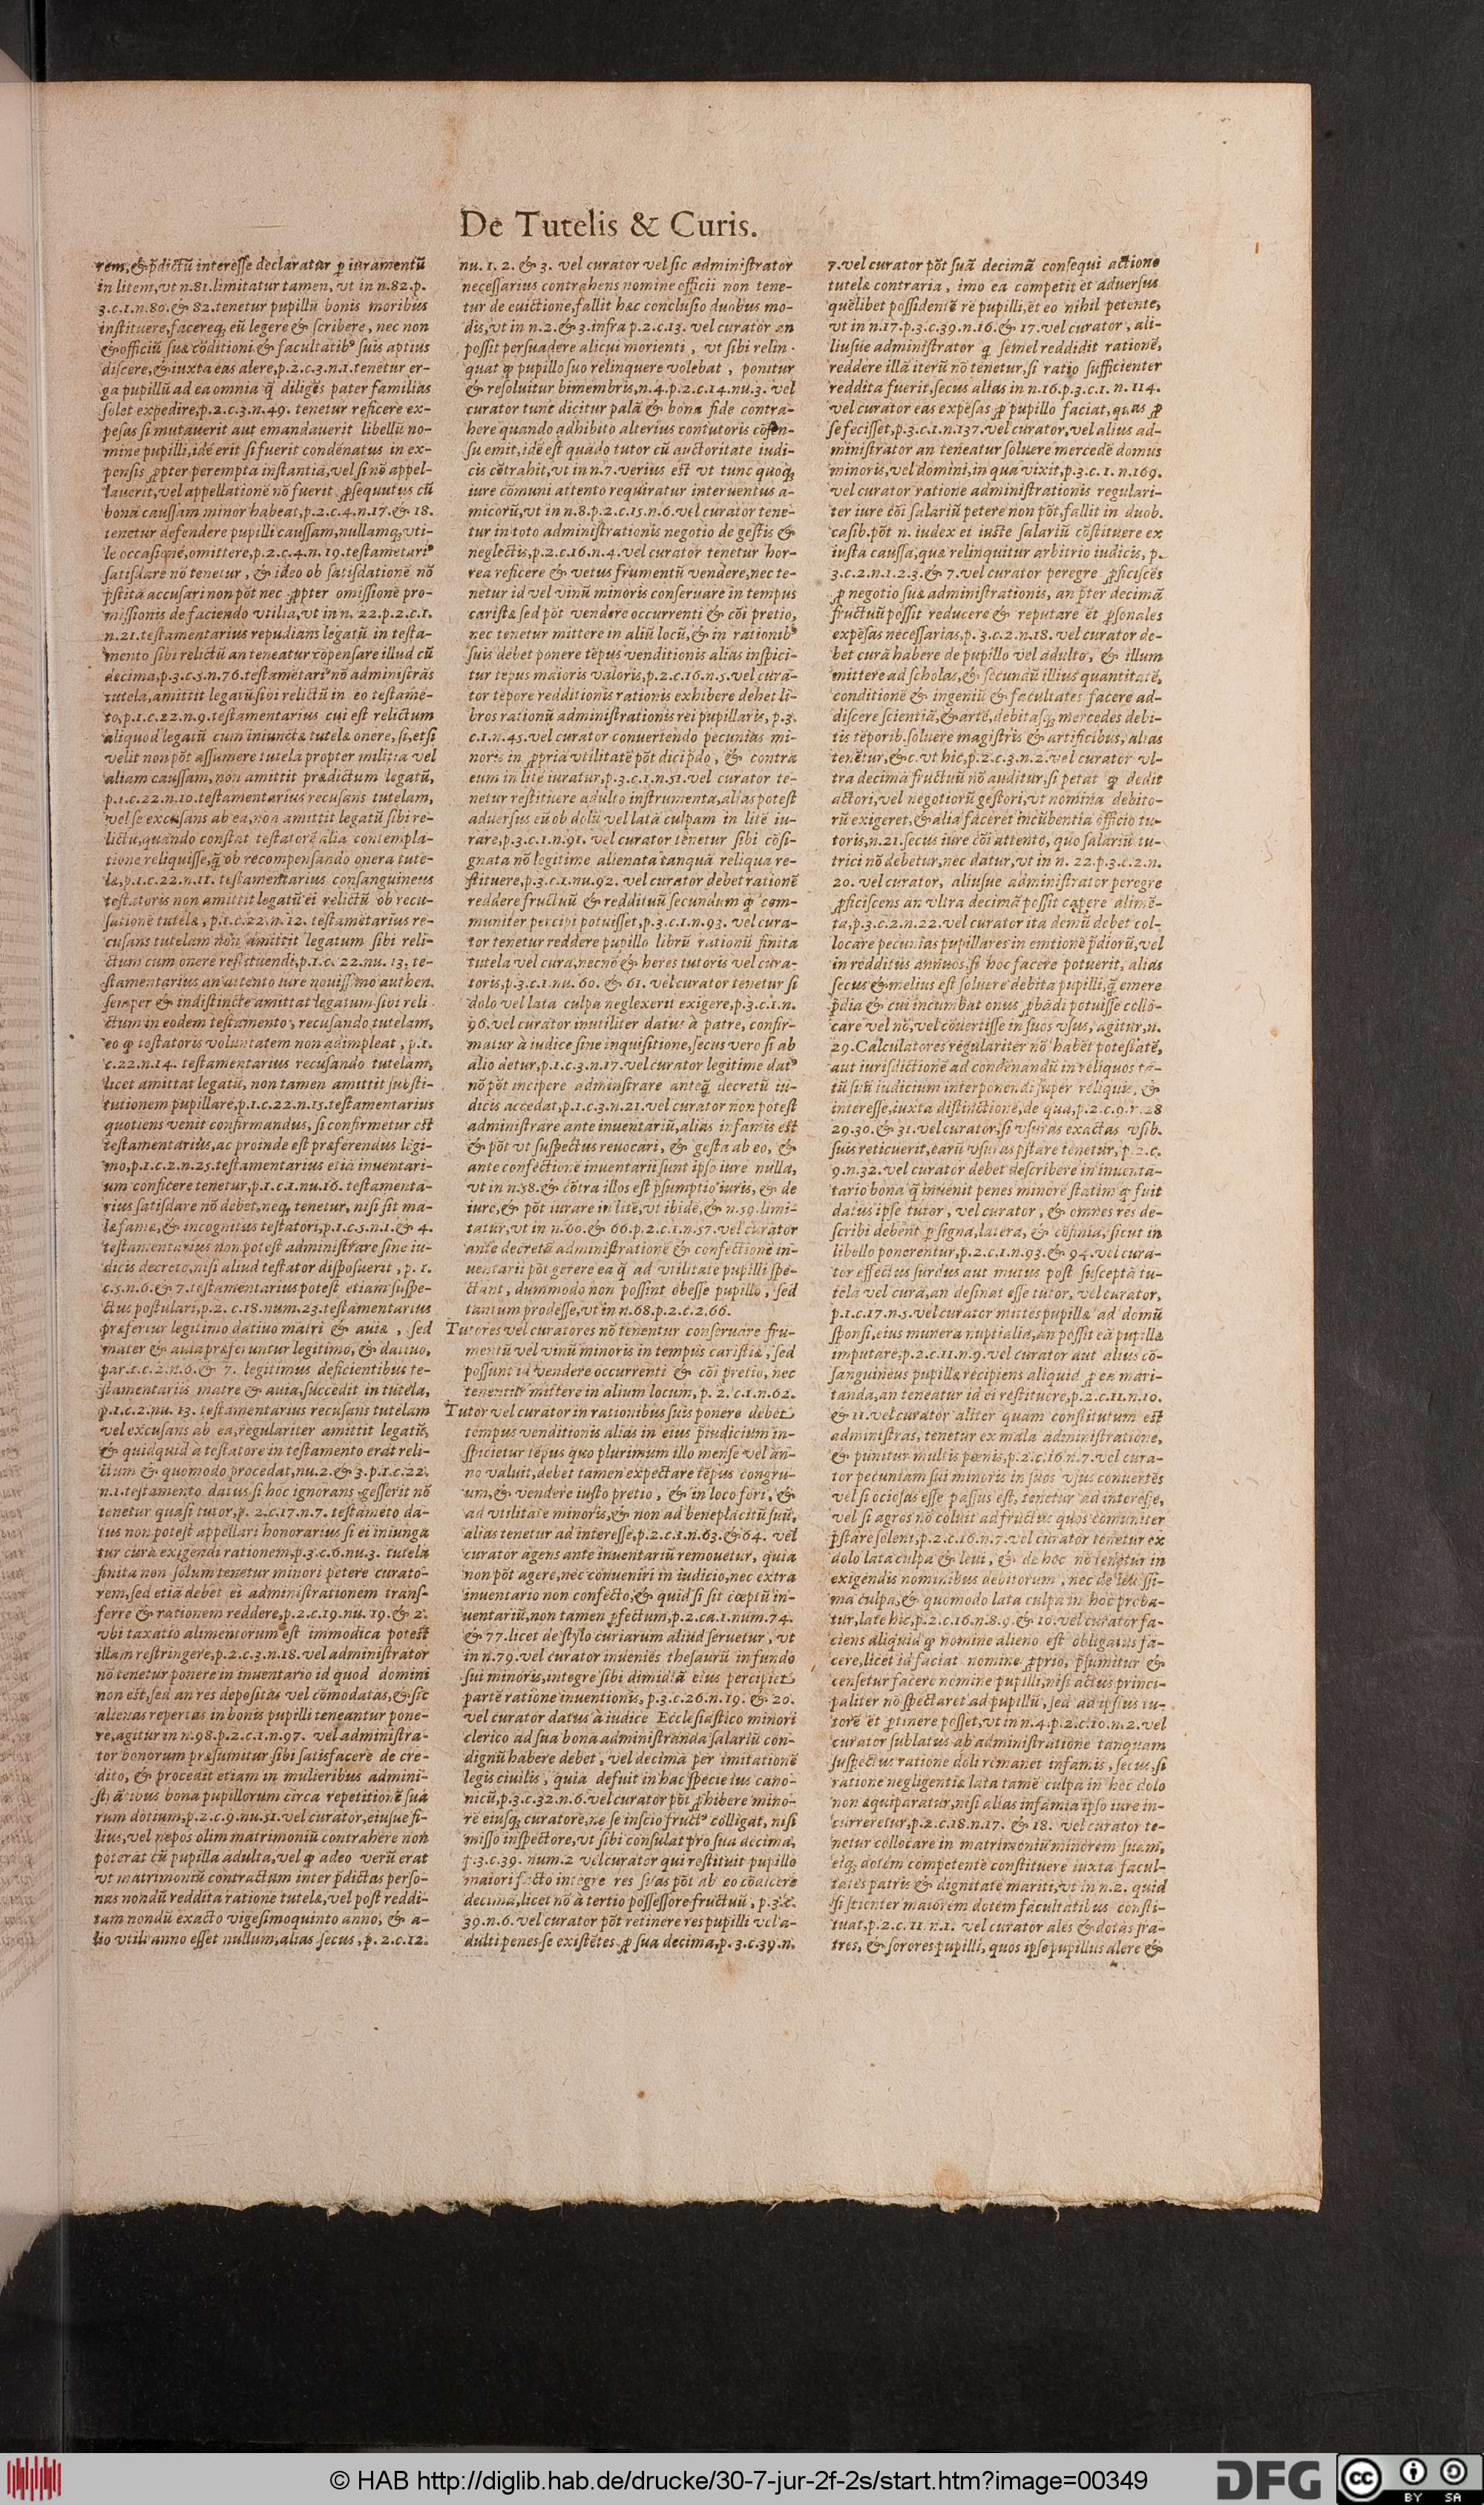 De Tutelis & Curis.
rem, & p̃dictũ interesse declaratur ꝑ iuramentũ
in litem, vt n.81. limitatur tamen, vt in n.82. p.
3.c.1.n.80. & 82. tenetur pupillũ bonis moribus
instituere, facereq; eũ legere & scribere, nec non
& officiũ suæ cõditioni & facultatib⁹ suis aptius
discere, & iuxta eas alere, p.2.c.3.n.1. tenetur er-
ga pupillũ ad ea omnia q̃ diligẽs pater familias
solet expedire, p.2.c.3.n.49. tenetur reficere ex-
pẽsas si mutauerit aut emandauerit libellũ no-
mine pupilli, idẽ erit si fuerit condẽnatus in ex-
pensis ꝓpter perempta instantiã, vel si nõ appel-
lauerit, vel appellationẽ nõ fuerit ꝓsequutus cũ
bonã caussam minor habeat, p.2.c.4.n.17. & 18.
tenetur defendere pupilli caussam, nullamq; vti-
le occasionẽ, omittere, p.2.c.4.n.19. testamẽtari⁹
satisdare nõ tenetur, & ideo ob satisdationẽ nõ
p̃stitã accusari non põt nec ꝓpter omissionẽ pro-
missionis de faciendo vtilia, vt in n. 22.p.2.c.1.
n.21. testamentarius repudians legatũ in testa-
mento sibi relictũ an teneatur cõpensare illud cũ
decima, p.3.c.5.n.76. testamẽtari⁹ nõ administrãs
tutela, amittit legatũ sibi relictũ in eo testamẽ-
to, p.1.c.22.n.9. testamentarius cui est relictum
aliquod legatũ cum iniunctæ tutelæ onere, si, etsi
velit non põt assumere tutelã propter militia vel
aliam caussam, non amittit prædictum legatũ,
p.1.c.22.n.10. testamentarius recusans tutelam,
vel se excusans ab ea, non amittit legatũ sibi re-
lictu, quando constat testatorẽ alia contempla-
tione reliquisse, q̃ ob recompensando opera tute-
læ, p.1.c.22.n.11. testamentarius consanguineus
testatoris non amittit legatũ ei relictũ ob recu-
sationẽ tutelæ, p.1.c.22.n.12. testamẽtarius re-
cusans tutelam non amittit legatum sibi reli-
ctum cum onere restituendi, p.1.c.22.nu.13. te-
stamentarius an attento iure nouissimo authen.
semper & indistincte amittat legatum sibi reli-
ctum in eodem testamento, recusando tutelam,
eo ꝙ testatoris voluntatem non adimpleat, p.1.
c.22.n.14. testamentarius recusando tutelam,
licet amittat legatũ, non tamen amittit substi-
tutionem pupillare, p.1.c.22.n.15. testamentarius
quotiens venit confirmandus, si confirmetur est
testamentarius, ac proinde est præferendus legi-
mo, p.1.c.2.n.25. testamentarius etiã inuentari-
um conficere tenetur, p.1.c.1.nu.16. testamenta-
rius satisdare nõ debet, neq; tenetur, nisi sit ma-
læ famæ, & incognitus testatori, p.1.c.5.n.1. & 4.
testamentarius non potest administrare sine iu-
dicis decreto, nisi aliud testator disposuerit, p.1.
c.5.n.6. & 7. testamentarius potest etiam suspe-
ctus postulari, p.2. c.18.num.23. testamentarius
præfertur legitimo datiuo matri & auiæ, sed
mater & auia præferuntur legitimo, & datiuo,
par.1.c.2.n.6. & 7. legitimus deficientibus te-
stamentariis matre & auia, succedit in tutela,
p.1.c.2.nu.13. testamentarius recusans tutelam
vel excusans ab ea, regulariter amittit legatũ,
& quidquid a testatore in testamento erat reli-
ctum & quomodo procedat, nu.2. & 3.p.1.c.22.
n.1. testamento datus si hoc ignorans gesserit nõ
tenetur quasi tutor, p. 2.c.17.n.7. testamẽto da-
tus non potest appellari honorarius si ei iniunga
tur cura exigendi rationem, p.3.c.6.nu.3. tutela
finita non solum tenetur minori petere curato-
rem, sed etiã debet ei administrationem trans-
ferre & rationem reddere, p.2.c.19.nu.19. & 2.
vbi taxatio alimentorum est immodica potest
illam restringere, p.2.c.3.n.18. vel administrator
nõ tenetur ponere in inuentario id quod domini
non est, sed an res depositas vel cõmodatas, & sic
alienas repertas in bonis pupilli teneantur pone-
re, agitur in n.98.p.2.c.1.n.97. vel administra-
tor bonorum præsumitur sibi satisfacere de cre-
dito, & procedit etiam in mulieribus admini-
strãtibus bona pupillorum circa repetitionẽ sua
rum dotium, p.2.c.9.nu.51. vel curator, eiusue fi-
lius, vel nepos olim matrimoniũ contrahere non
poterat cũ pupilla adulta, vel ꝙ adeo verũ erat
vt matrimoniũ contractum inter p̃dictas perso-
nas nondũ reddita ratione tutelæ, vel post reddi-
tam nondũ exacto vigesimoquinto anno, & a-
lio vtili anno esset nullum, alias secus, p.2.c.12.
nu.1.2. & 3. vel curator vel sic administrator
necessarius contrahens nomine officii non tene-
tur de euictione, fallit hæc conclusio duobus mo-
dis, vt in n.2. & 3. infra p.2.c.13. vel curator an
possit persuadere alicui morienti, vt sibi relin-
quat ꝙ pupillo suo relinquere volebat, ponitur
& resoluitur bimembris, n.4.p.2.c.14.nu.3. vel
curator tunc dicitur palã & bona fide contra-
here quando adhibito alterius contutoris cõsen-
su emit, idẽ est quãdo tutor cũ auctoritate iudi-
cis cõtrahit, vt in n.7. verius est vt tunc quoq;
iure cõmuni attento requiratur interuentus a-
micorũ, vt in n.8.p.2.c.15.n.6. vel curator tene-
tur in toto administrationis negotio de gestis &
neglectis, p.2.c.16.n.4. vel curator tenetur hor-
rea reficere & vetus frumentũ vendere, nec te-
netur id vel vinũ minoris conseruare in tempus
caristæ sed põt vendere occurrenti & cõi pretio,
nec tenetur mittere in aliũ locũ, & in rationib⁹
suis debet ponere tẽpus venditionis alias inspici-
tur tẽpus maioris valoris, p.2.c.16.n.5. vel cura-
tor tẽpore redditionis rationis exhibere debet li-
bros rationũ administrationis rei pupillaris, p.3.
c.1.n.45. vel curator conuertendo pecunias mi-
noris in ꝓpriã vtilitatẽ põt dici p̃do, & contra
eum in litẽ iuratur, p.3.c.1.n.51. vel curator te-
netur restituere adulto instrumenta, alias potest
aduersus eũ ob dolũ vel latã culpam in litẽ iu-
rare, p.3.c.1.n.91. vel curator tenetur sibi cõsi-
gnata nõ legitime alienata tanquã reliqua re-
stituere, p.3.c.1.nu.92. vel curator debet rationẽ
reddere fructuũ & reddituũ secundum ꝙ com-
muniter percipi potuisset, p.3.c.1.n.93. vel cura-
tor tenetur reddere pupillo librũ rationũ finita
tutela vel cura, necnõ & heres tutoris vel cura-
toris, p.3.c.1.nu.60. & 61. vel curator tenetur si
dolo vel lata culpa neglexerit exigere, p.3.c.1.n.
96. vel curator inutiliter datus à patre, confir-
matur à iudice sine inquisitione, secus vero si ab
alio detur, p.1.c.3.n.17. vel curator legitime dat⁹
nõ põt incipere adminstrare anteq̃ decretũ iu-
dicis accedat, p.1.c.3.n.21. vel curator non potest
administrare ante inuentariũ, alias infamis est
& põt vt suspectus reuocari, & gesta ab eo, &
ante confectionẽ inuentarii sunt ipso iure nulla,
vt in n.58. & cõtra illos est p̃sumptio iuris, & de
iure, & põt iurare in litẽ, vt ibidẽ, & n.59. limi-
tatur, vt in n.60. & 66.p.2.c.1.n.57. vel curator
ante decretũ administrationẽ & confectionẽ in-
uentarii põt gerere ea q̃ ad vtilitatẽ pupilli spe-
ctant, dummodo non possint obesse pupillo, sed
tantum prodesse, vt in n.68.p.2.c.2.66.
Tutores vel curatores nõ tenentur conseruare fru-
mentũ vel vinũ minoris in tempus caristiæ, sed
possunt id vendere occurrenti & cõi pretio, nec
tenentur mittere in alium locum, p. 2. c.1.n.62.
Tutor vel curator in rationibus suis ponere debet
tempus venditionis alias in eius p̃iudicium in-
spicietur tẽpus quo plurimum illo mense vel an-
no valuit, debet tamen expectare tẽpus congru-
um, & vendere iusto pretio, & in loco fori, &
ad vtilitatẽ minoris, & non ad beneplacitũ suũ,
alias tenetur ad interesse, p.2.c.1.n.63. & 64. vel
curator agens ante inuentariũ remouetur, quia
non põt agere, nec conueniri in iudicio, nec extra
inuentario non confecto, & quid si sit cœptũ in-
uentariũ, non tamen ꝑfectum, p.2.ca.1.num.74.
& 77. licet de stylo curiarum aliud seruetur, vt
in n.79. vel curator inueniẽs thesaurũ in fundo
sui minoris, integre sibi dimidiã eius percipiet
partẽ ratione inuentionis, p.3.c.26.n.19. & 20.
vel curator datus à iudice Ecclesiastico minori
clerico ad sua bona administranda salariũ con-
dignũ habere debet, vel decimã per imitationẽ
legis ciuilis, quia defuit in hac specie ius cano-
nicũ, p.3.c.32.n.6. vel curator põt ꝓhibere mino-
rẽ eiusq; curatorẽ, ne se inscio fruct⁹ colligat, nisi
misso inspectore, vt sibi consulat pro sua decima,
p.3.c.39. num.2 vel curator qui restituit pupillo
maiori facto integre res suas põt ab eo cõdicere
decimã, licet nõ à tertio possessore fructuũ, p.3.c.
39.n.6. vel curator põt retinere res pupilli vel a-
dulti penes se existẽtes ꝓ sua decima, p.3.c.39.n.
7. vel curator põt suã decimã consequi actione
tutelæ contraria, imo ea competit et aduersus
quẽlibet possidentẽ rẽ pupilli, et eo nihil petente,
vt in n.17.p.3.c.39.n.16. & 17. vel curator, ali-
liusue administrator q̃ semel reddidit rationẽ,
reddere illã iterũ nõ tenetur, si ratio sufficienter
reddita fuerit, secus alias in n.16.p.3.c.1. n.114.
vel curator eas expẽsas ꝓ pupillo faciat, quas ꝓ
se fecisset, p.3.c.1.n.137. vel curator, vel alius ad-
ministrator an teneatur soluere mercedẽ domus
minoris, vel domini, in qua vixit, p.3.c.1.n.169.
vel curator ratione administrationis regulari-
ter iure cõi salariũ petere non põt, fallit in duob.
casib. põt n. iudex ei iuste salariũ cõstituere ex
iusta caussa, quæ relinquitur arbitrio iudicis, p.
3.c.2.n.1.2.3. & 7. vel curator peregre ꝓficiscẽs
ꝓ negotio suæ administrationis, an p̃ter decimã
fructuũ possit reducere & reputare et ꝑsonales
expẽsas necessarias, p. 3.c.2.n.18. vel curator de-
bet curã habere de pupillo vel adulto, & illum
mittere ad scholas, & secundũ illius quantitatẽ,
conditionẽ & ingeniũ & facultates facere ad-
discere scientiã, & artẽ, debitasq; mercedes debi-
tis tẽporib. soluere magistris & artificibus, alias
tenẽtur, &c. vt hic, p.2.c.3.n.2. vel curator vl-
tra decimã fructuũ nõ auditur, si petat ꝙ dedit
actori, vel negotiorũ gestori, vt nomina debito-
rũ exigeret, & alia faceret incũbentia officio tu-
toris, n.21. secus iure cõi attento, quo salariũ tu-
trici nõ debetur, nec datur, vt in n. 22.p.3.c.2.n.
20. vel curator, aliusue administrator peregre
ꝓficiscens an vltra decimã possit capere alimẽ-
ta, p.3.c.2.n.22. vel curator ita demũ debet col-
locare pecunias pupillares in emtionẽ p̃diorũ, vel
in redditus annuos, si hoc facere potuerit, alias
secus & melius est soluere debita pupilli, q̃ emere
p̃dia & cui incumbat onus ꝓbãdi potuisse collo-
care vel nõ, vel cõuertisse in suos vsus, agitur, n.
29. Calculatores regulariter nõ habẽt potestatẽ,
aut iurisdictionẽ ad condẽnandũ in reliquos tã-
tũ suũ iudicium interponendi super reliquis, &
interesse, iuxta distinctionẽ, de qua, p.2.c.9.n.28
29.30. & 31. vel curator, si vsuras exactas vsib.
suis reticuerit, earũ vsuras p̃stare tenetur, p.2.c.
9.n.32. vel curator debet describere in inuenta-
tario bona q̃ inuenit penes minorẽ statim ꝙ fuit
datus ipse tutor, vel curator, & omnes res de-
scribi debent ꝑ signa, latera, & cõfinia, sicut in
libello ponerentur, p.2.c.1.n.93. & 94. vel cura-
tor effectus surdus aut mutus post susceptã tu-
telã vel curã, an desinat esse tutor, vel curator,
p.1.c.17.n.5. vel curator mittẽs pupillæ ad domũ
sponsi, eius munera nuptialia, an possit ea pupillæ
imputare, p.2.c.11.n.9. vel curator aut alius cõ-
sanguineus pupillæ recipiens aliquid ꝓ ea mari-
tanda, an teneatur id ei restituere, p.2.c.11.n.10.
& 11. vel curator aliter quam constitutum est
administrãs, tenetur ex mala administratione,
& punitur multis pœnis, p.2.c.16.n.7. vel cura-
tor pecuniam sui minoris in suos vsus conuertẽs
vel si ociosas esse passus est, tenetur ad interesse,
vel si agros nõ coluit ad fructus quos cõmuniter
p̃stare solent, p.2.c.16.n.7. vel curator tenetur ex
dolo lata culpa & leui, & de hoc nõ tenetur in
exigendis nominibus debitorum, nec de leuissi-
ma culpa, & quomodo lata culpa in hoc proba-
tur, late hic, p.2.c.16.n.8.9. & 10. vel curator fa-
ciens aliquid ꝙ nomine alieno est obligatus fa-
cere, licet id faciat nomine ꝓprio, p̃sumitur &
censetur facere nomine pupilli, nisi actus princi-
paliter nõ spectaret ad pupillũ, sed ad ipsius tu-
torẽ et ꝑtinere posset, vt in n.4.p.2.c.10.n.2. vel
curator sublatus ab administratione tanquam
suspectus ratione doli remanet infamis, secus, si
ratione negligentiæ lata tamẽ culpa in hoc dolo
non æquiparatur, nisi alias infamia ipso iure in-
curreretur, p.2.c.18.n.17. & 18. vel curator te-
netur collocare in matrimoniũ minorem suam,
eiq; dotem competentẽ constituere iuxta facul-
tates patris & dignitatẽ mariti, vt in n.2. quid
si scienter maiorem dotem facultatibus consti-
tuat, p.2.c.11.n.1. vel curator ales & dotas fra-
tres, & sorores pupilli, quos ipse pupillus alere &
© HAB http://diglib.hab.de/drucke/30-7-jur-2f-2s/start.htm?image=00349
DFG
cc
BY SA